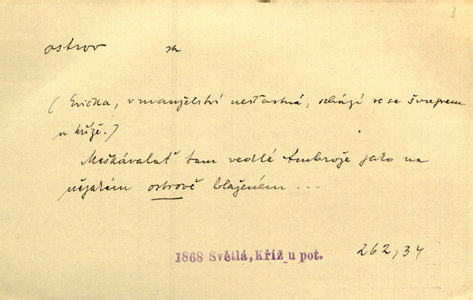 3
ostrov
(Evička, v manželství nešťastná, schází se se švagrem
u kříže.)
Meškávalať tam vedlé Ambrože jako na
nějakém ostrově blaženém ...
1868 Světlá, Kříž u pot. 262,34